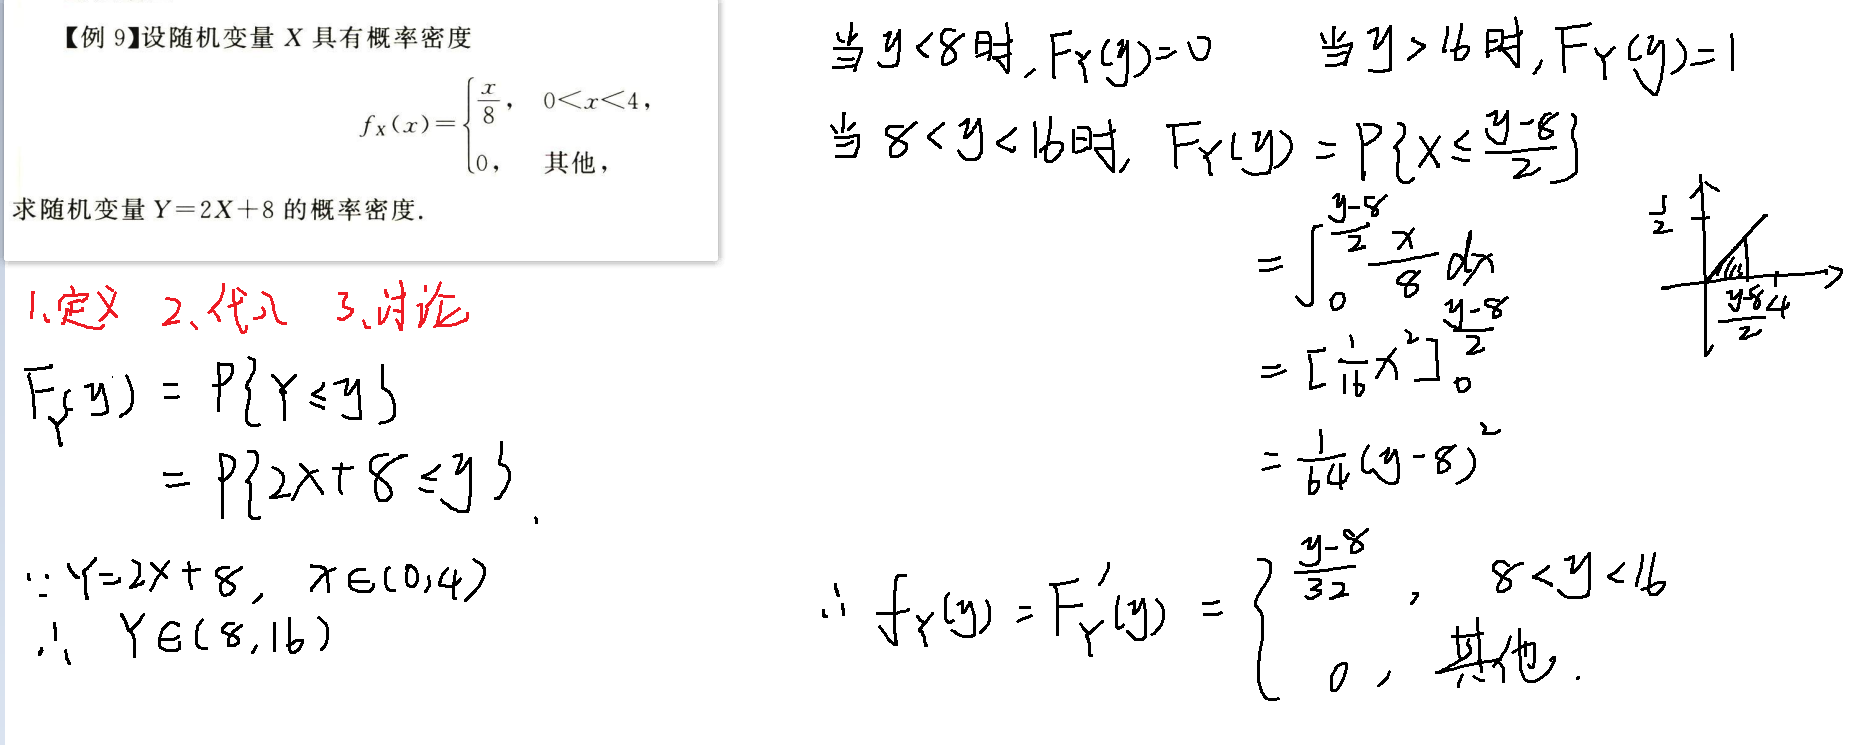 【例 9】设随机变量 X 具有概率密度
f_X(x)={ x/8, 0<x<4,
0, 其他,
求随机变量 Y=2X+8 的概率密度.
1、定义 2、代入 3、讨论
F_Y(y) = P{Y≤y}
= P{2X+8≤y}.
∵ Y=2X+8, x∈(0,4)
∴ Y∈(8,16)
当 y<8时, F_Y(y)=0 当 y>16时, F_Y(y)=1
当 8<y<16时, F_Y(y) = P{X≤(y-8)/2}
= ∫_0^{(y-8)/2} x/8 dx
= [1/16 x²]_0^{(y-8)/2}
= 1/64 (y-8)²
1/2
(y-8)/2 4
∴ f_Y(y) = F_Y'(y) = { (y-8)/32 , 8<y<16
0 , 其他.